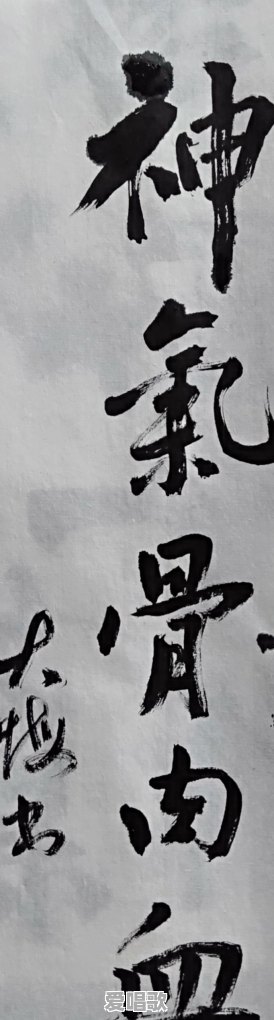 神氣骨肉血
大梅书
爱唱歌